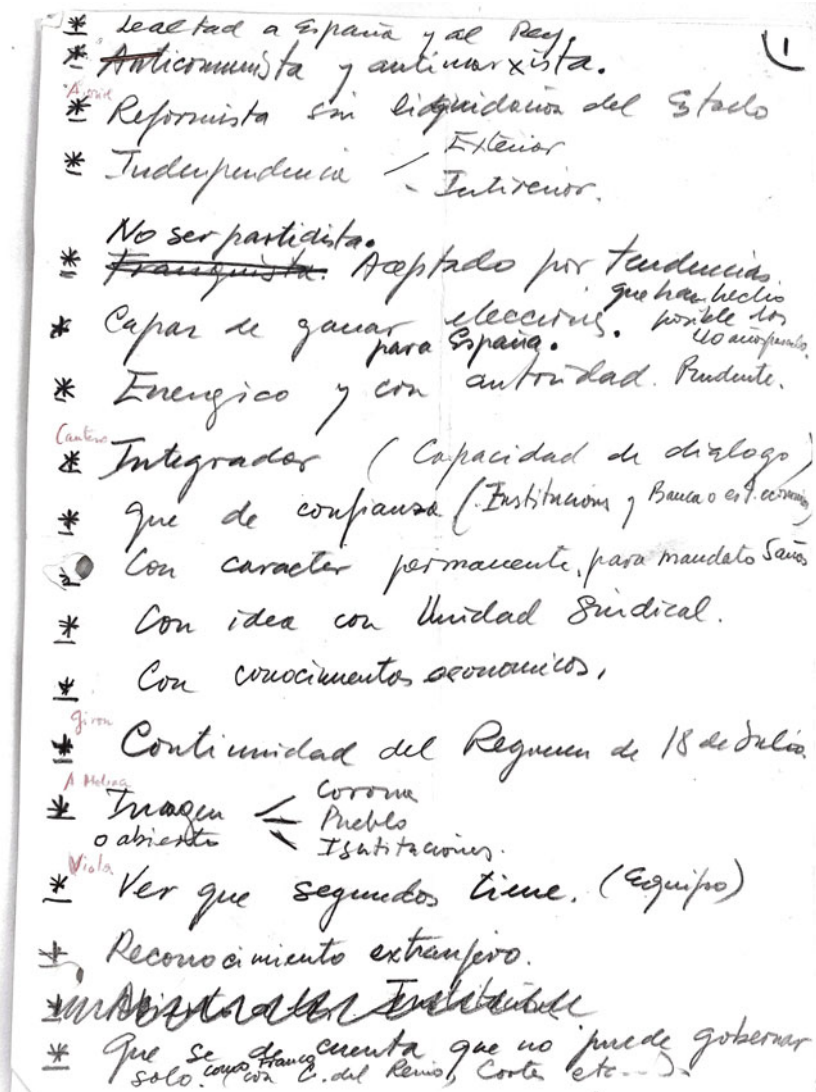 * Lealtad a España y al Rey.
1
* Anticomunista y antimarxista.
* Reformista sin liquidacion del Estado
* Independencia Exterior
- Intirerior.
No ser partidista.
* Franquista. Aceptado por tendencias
que han hecho
posible los
40 años pasados.
* Capaz de ganar elecciones.
para España.
* Energico y con autoridad. Prudente.
Cantero
* Integrador (Capacidad de dialogo)
* que de confianza (Instituciones y Banca o est. economico
* Con caracter permanente, para mandato 5 años
* Con idea con Unidad Sindical.
* Con conocimientos economicos,
Giron
* Continuidad del Regimen de 18 de Julio
A Molina
* Imagen Corona
o abierto Pueblo
Isntituciones.
Viola
* Ver que segundos tiene. (Equipo)
* Reconocimiento extranjero.
* Que se de cuenta que no puede gobernar
solo. como Franco (con C. del Reino, Cortes etc...).